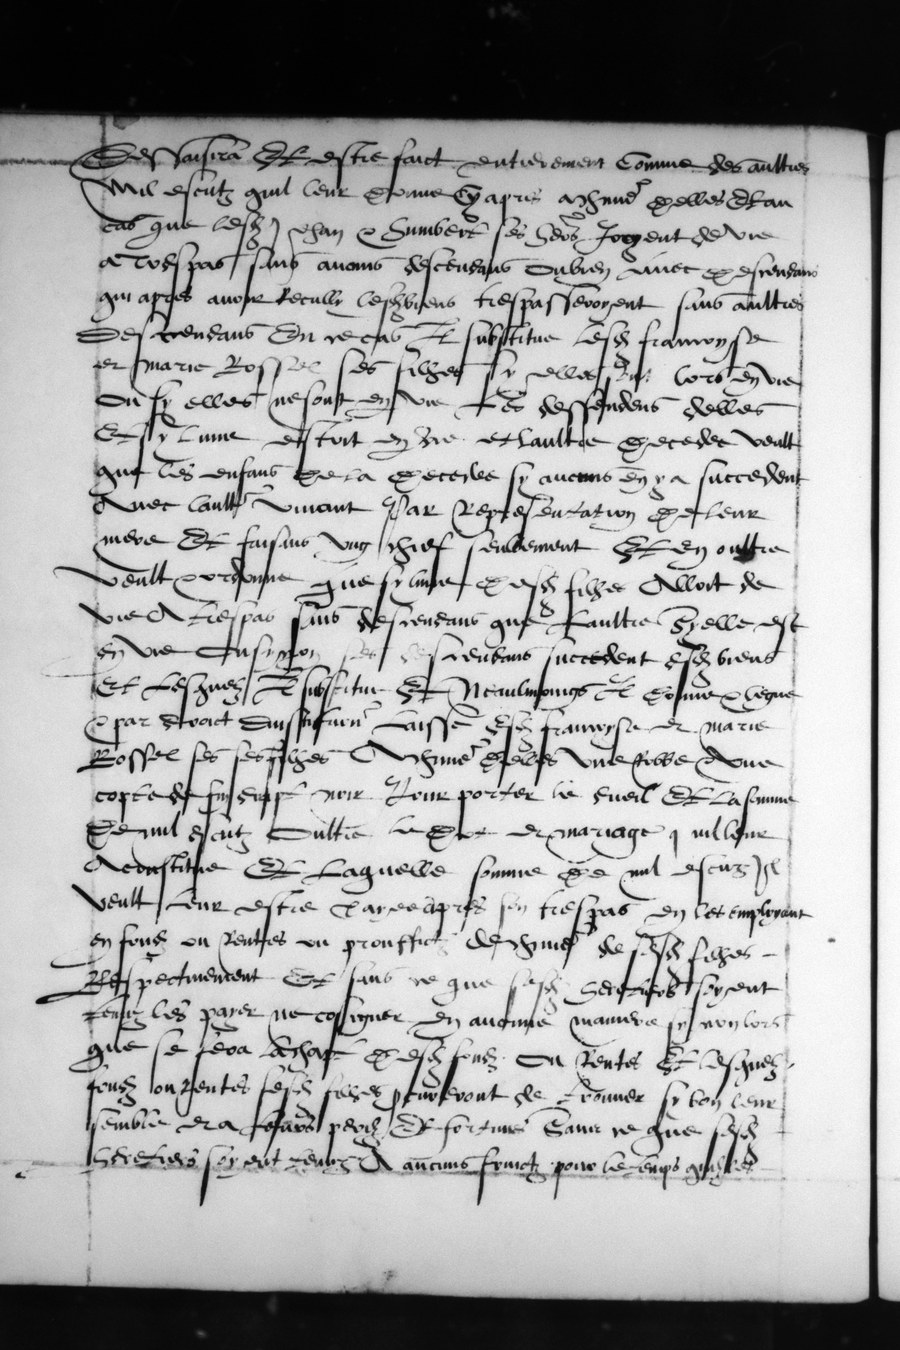 Et estre faict entierement comme des aultres
mil escutz quil leur donne cy apres a chune delles Et au
cas que lesd Jehan & humbert ses hers voysent de vie
a trespas sans aucuns descendans ou bien avec descendans
qui apres avoir recully lesd biens trespasseroyent sans aultres
descendans En ce cas Il substitue lesd francoyse
et marie Rossel ses filhes sy elles sont lors en vie
Ou sy elles ne sont en vie les dessendens delles
Et sy lune estoit en vie et laultre decedee veult
que les enfans de la decedee sy aucuns en y a succedent
Avec laultre vivant Par Representation de leur
mere Et faisans ung chief seullement Et en oultre
veult & ordonne que sy lune desd filhes Alloit de
vie A trespas sans descendans que laultre sy elle est
en vie ou synon ses descendans succedent esd biens
Et lesquelz Il substitue Et Neaulmoings Il donne & legue
& par droict dinstitution laisse esd francoyse et marie
Rossel ses filhes A chune delles une robbe & une
cotte de fin drapt noir Pour porter le dueil Et la somme
de mil escutz Oultre le dot et mariage quil leur
A constitue Et Laquelle somme de mil escuz Il
veult leur estre payee apres son trespas en les employant
en fondz ou rentes ou prouffictz de chune de sesd filhes
Respectivement Et sans ce que sesd heretiers soyent
tenuz les payer ne consigner en aucune maniere sy non lors
que se fera lachapt desd fondz Ou Rentes Et lesquelz
fondz ou rentes sesd filhes pcureront de trouver sy bon leur
semble et a leurs perilz Et fortune Sans ce que sesd
heretiers soyent tenuz A aucuns fruictz pour le temps quilz les